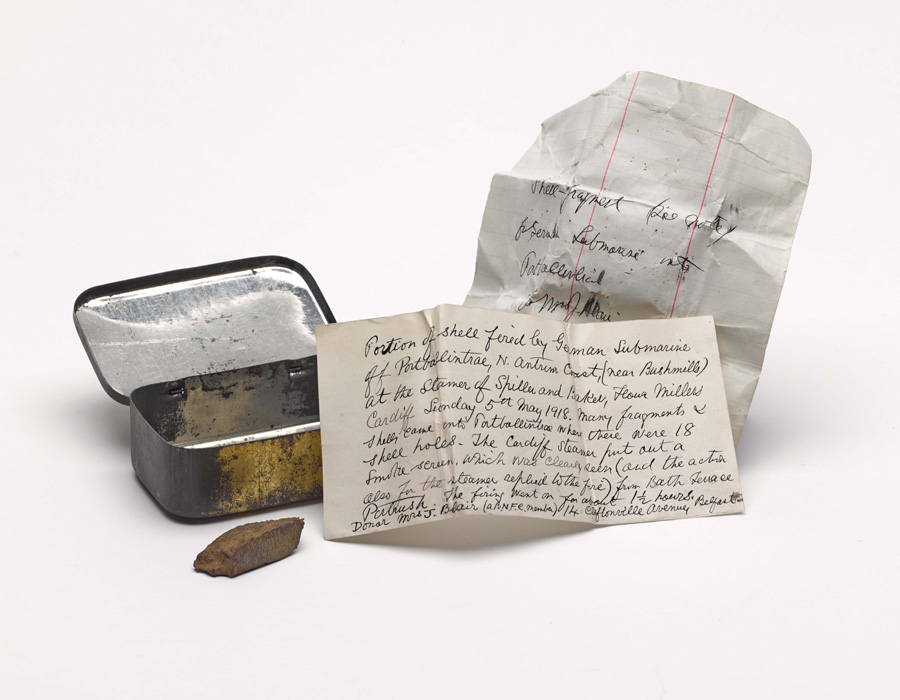 Shell-fragment
Submarine into
Portballintrae
Mrs J. Blair
Portion of shell fired by German Submarine
off Portballintrae, N. Antrim Coast, (near Bushmills)
at the Steamer of Spiller and Baker, Flour Millers
Cardiff Sunday 5th May 1918. Many fragments &
shells came into Portballintrae where there were 18
shell holes. The Cardiff steamer put out a
smoke screen, which was clearly seen (and the action
also for the steamer replied to the fire) from Bath Terrace
Portrush. The firing went on for about 1½ hours.
Donor Mrs J. Blair (a B.N.F.C. member) 14 Cliftonville Avenue, Belfast